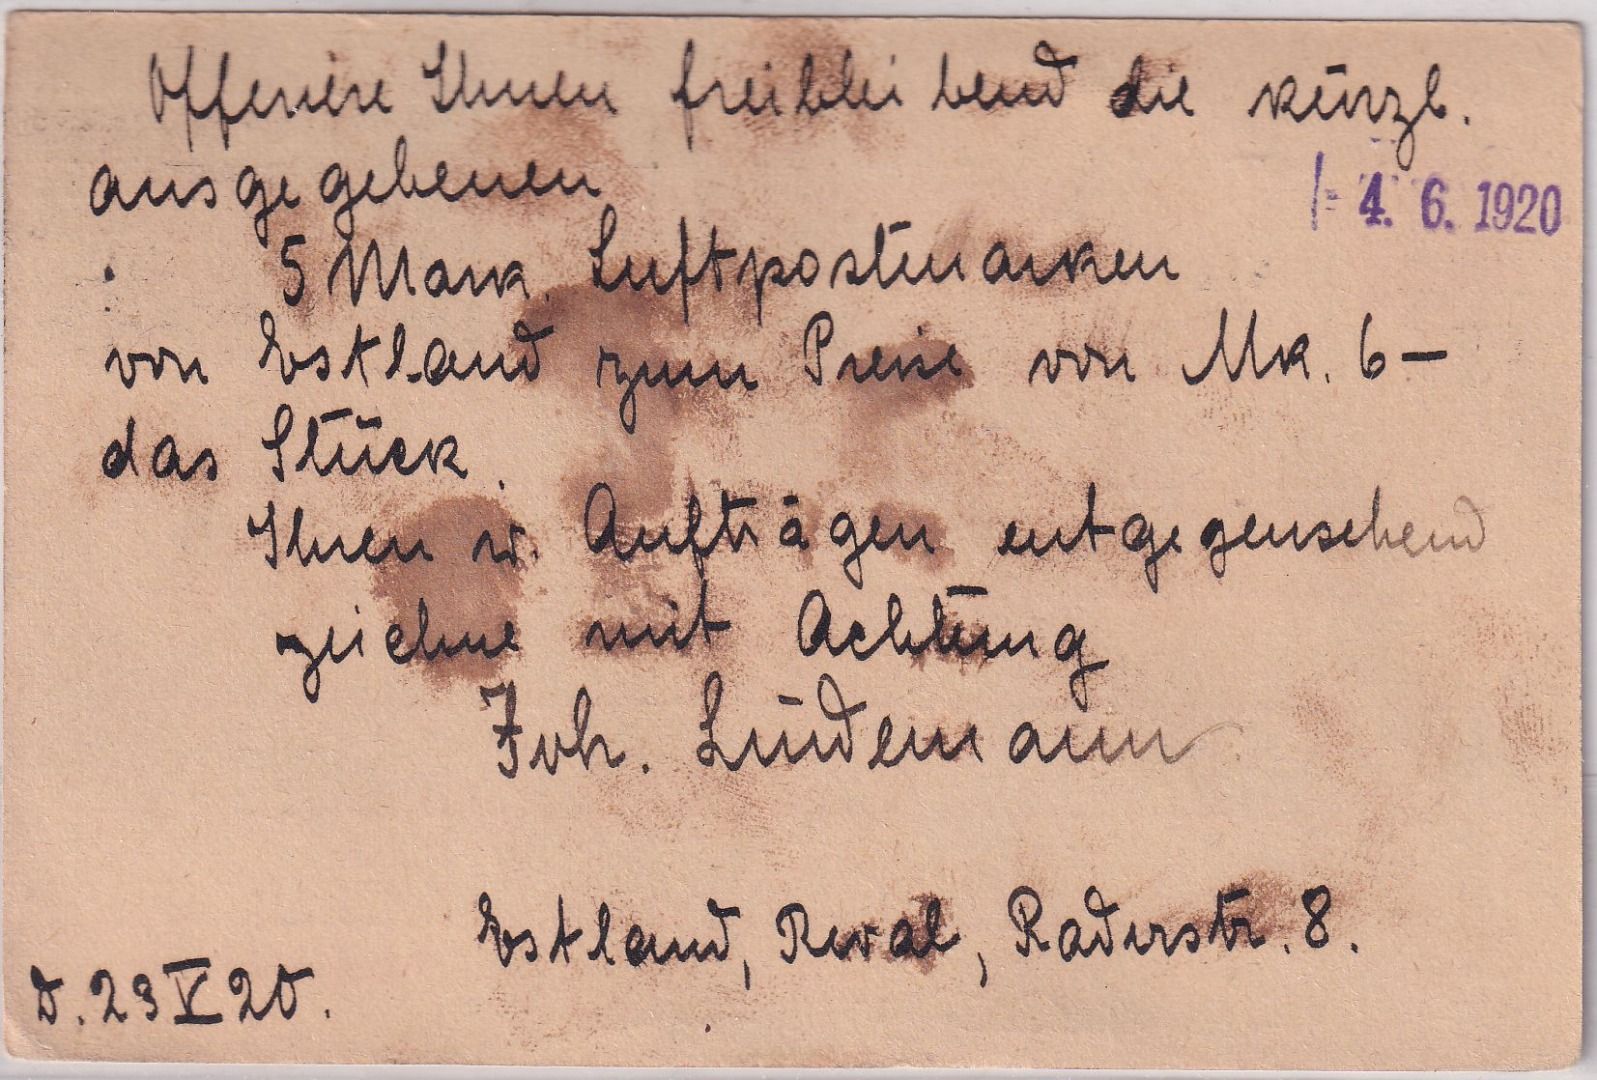 Offeriere Ihnen freibleibend die kürzl.
ausgegebenen
- 4. 6. 1920
5 Mark. Luftpostmarken
von Estland zum Preise von Mk. 6–
das Stück.
Ihren w. Aufträgen entgegensehend
zeichne mit Achtung
Joh. Lüdemann
Estland, Reval, Raderstr. 8.
D. 23 V 20.